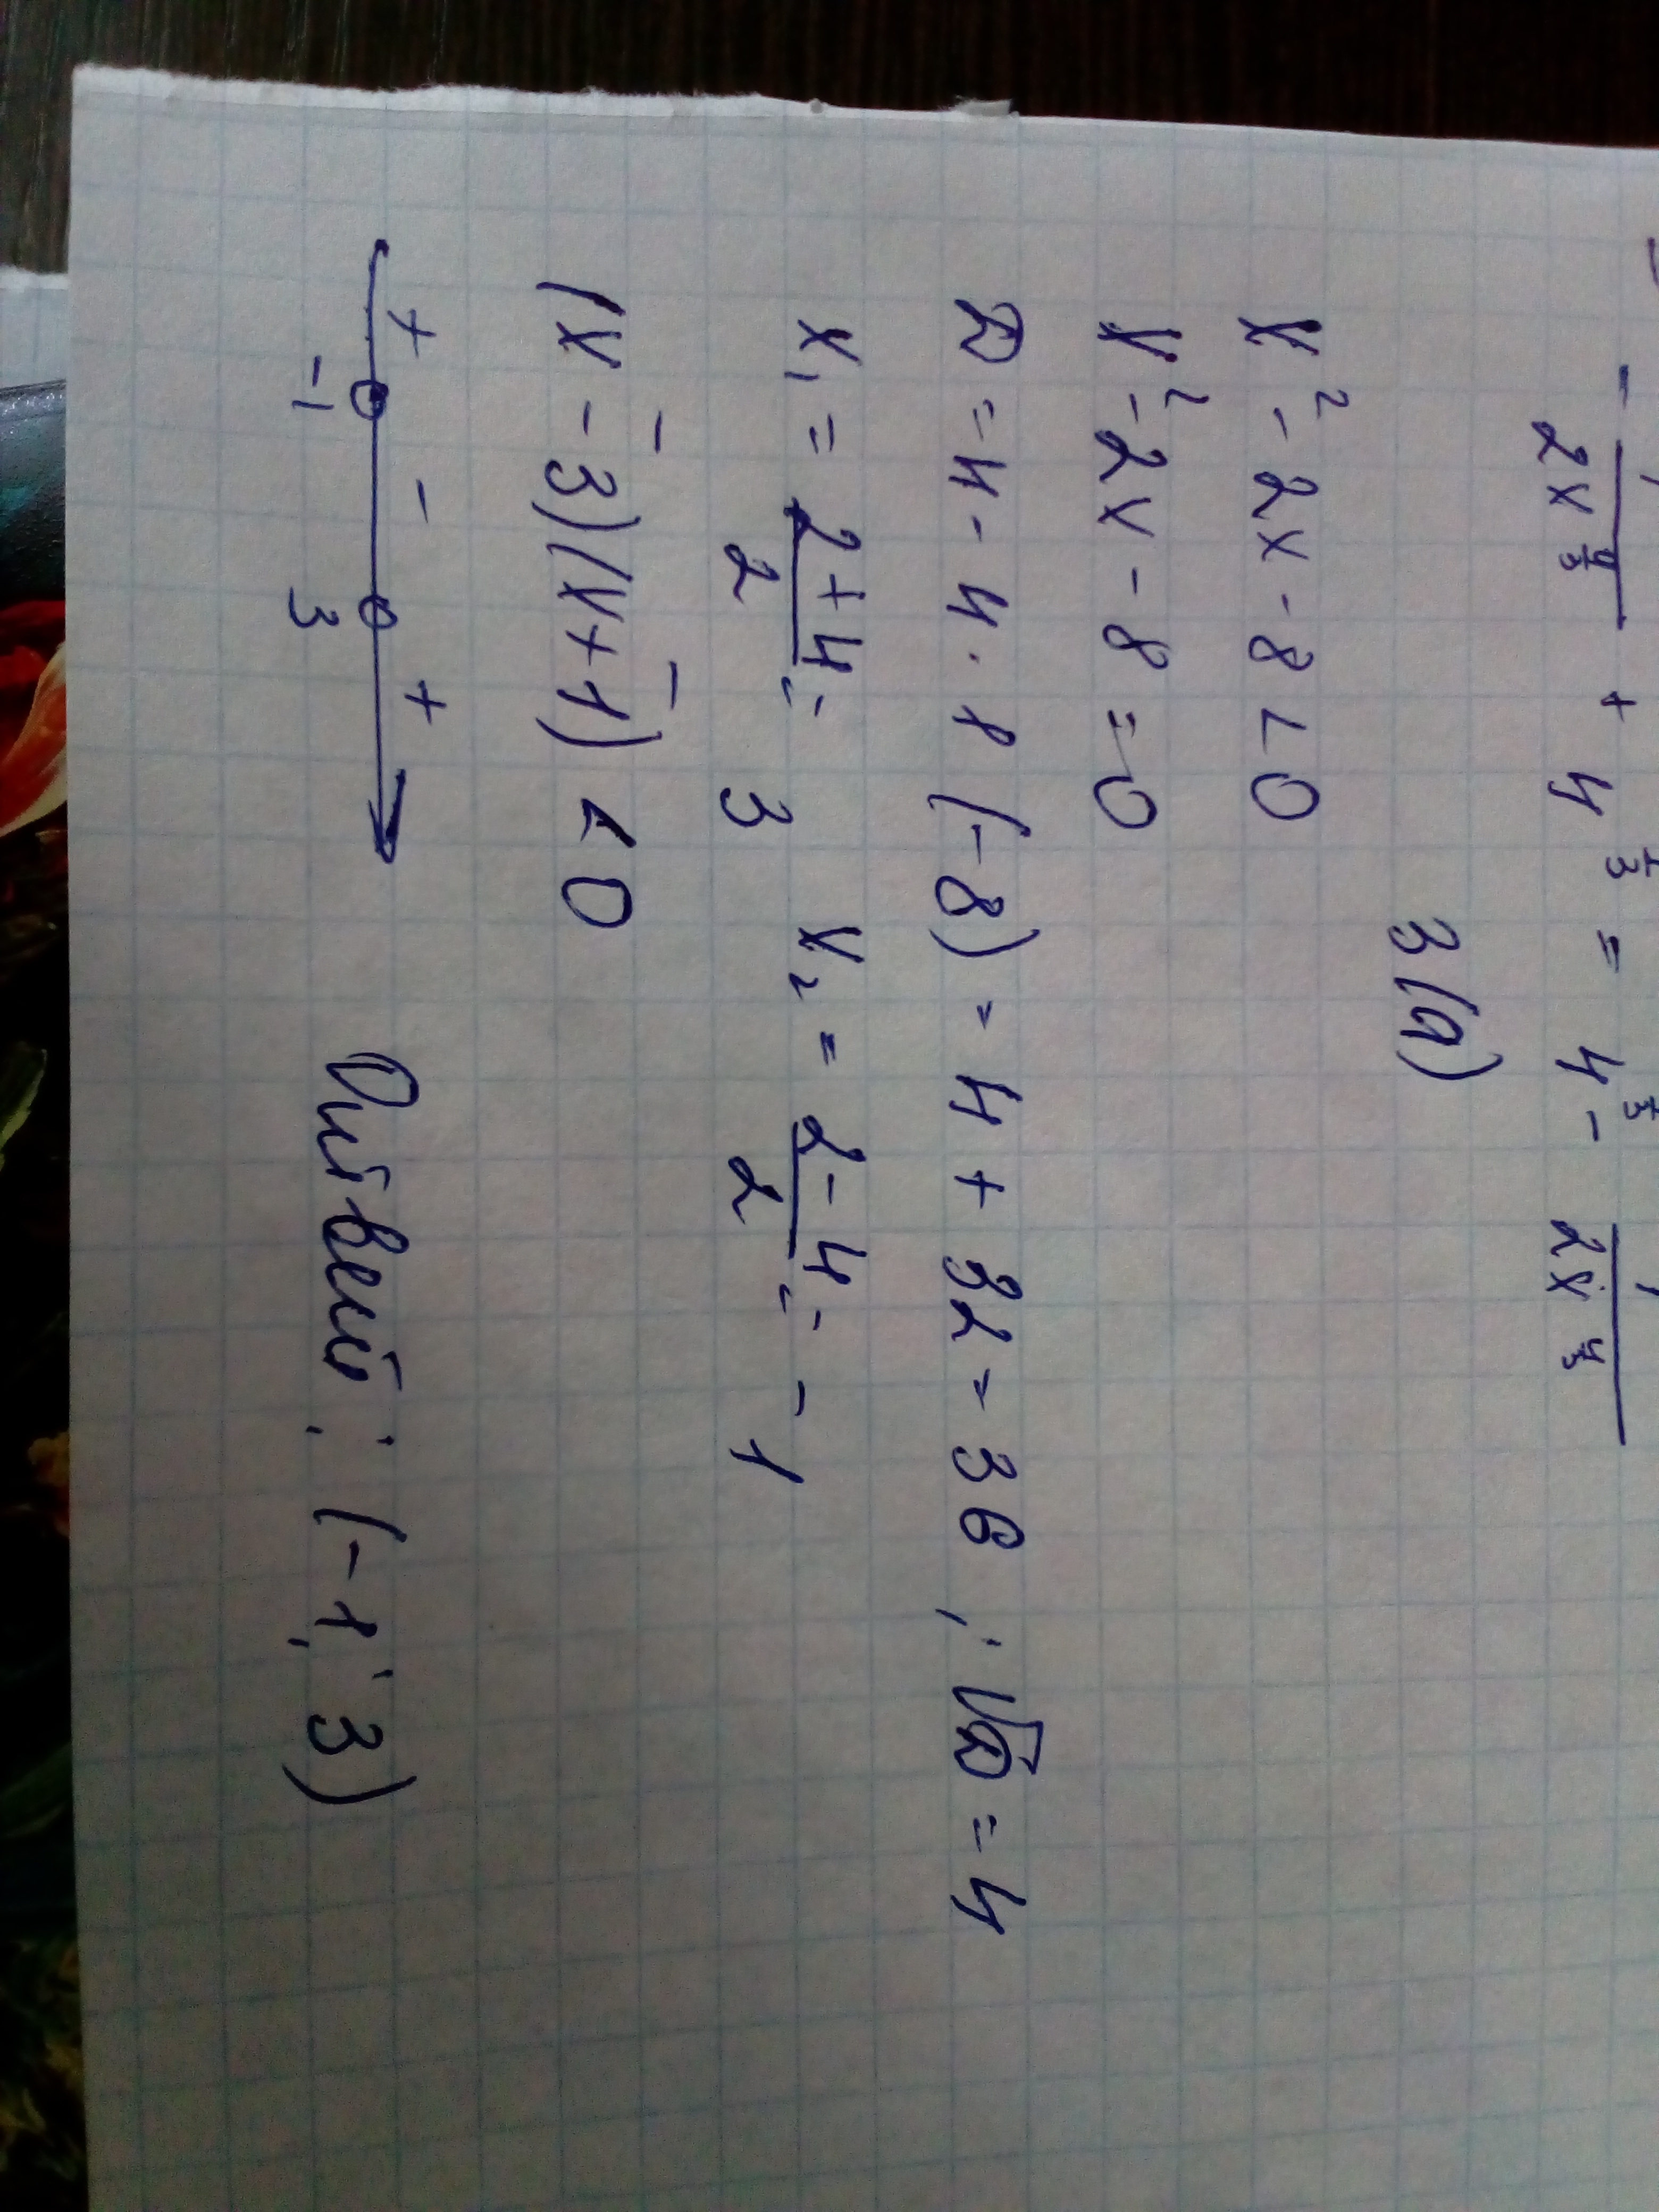 - 1/(2x^(4/3)) + 4^(1/3) = 4^(1/3) - 1/(2x^(4/3))
3(а)
x² - 2x - 8 < 0
x² - 2x - 8 = 0
D = 4 - 4 · 1 (-8) = 4 + 32 = 36 ; √D = 4
x₁ = (2 + 4)/2 = 3 x₂ = (2 - 4)/2 = -1
(x - 3)(x + 1) < 0
+ - +
-1 3 Ответ: (-1; 3)